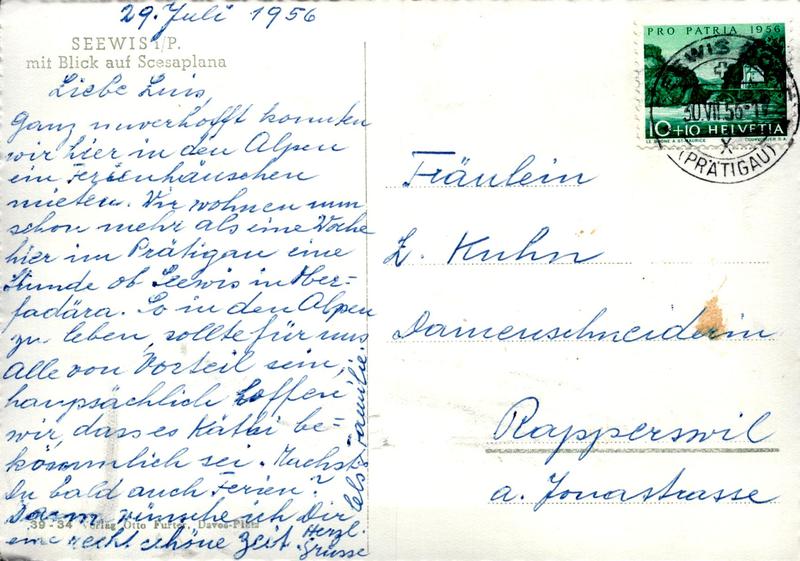 29. Juli 1956
SEEWIS i/P.
mit Blick auf Scesaplana
Liebe Luis,
Ganz unverhofft konnten
wir hier in den Alpen
ein Ferienhäuschen
mieten. Wir wohnen nun
schon mehr als eine Woche
hier im Prätigau eine
Stunde ob Seewis in Ober-
fadära. So in den Alpen
zu leben, sollte für uns
alle von Vorteil sein,
haupsächlich hoffen
wir, dass es Käthi be=
kömmlich sei. Machst
Du bald auch Ferien?
Dann wünsche ich Dir
eine recht schöne Zeit. Herzl.
Grüsse
Familie
39 - 34 Verlag Otto Furter, Davos-Platz
PRO PATRIA 1956
10+10 HELVETIA
COURVOISIER S.A.
SEEWIS
30.VII.56
X
(PRÄTIGAU)
Fräulein
L. Kuhn
Damenschneiderin
Rapperswil
a. Jonastrasse